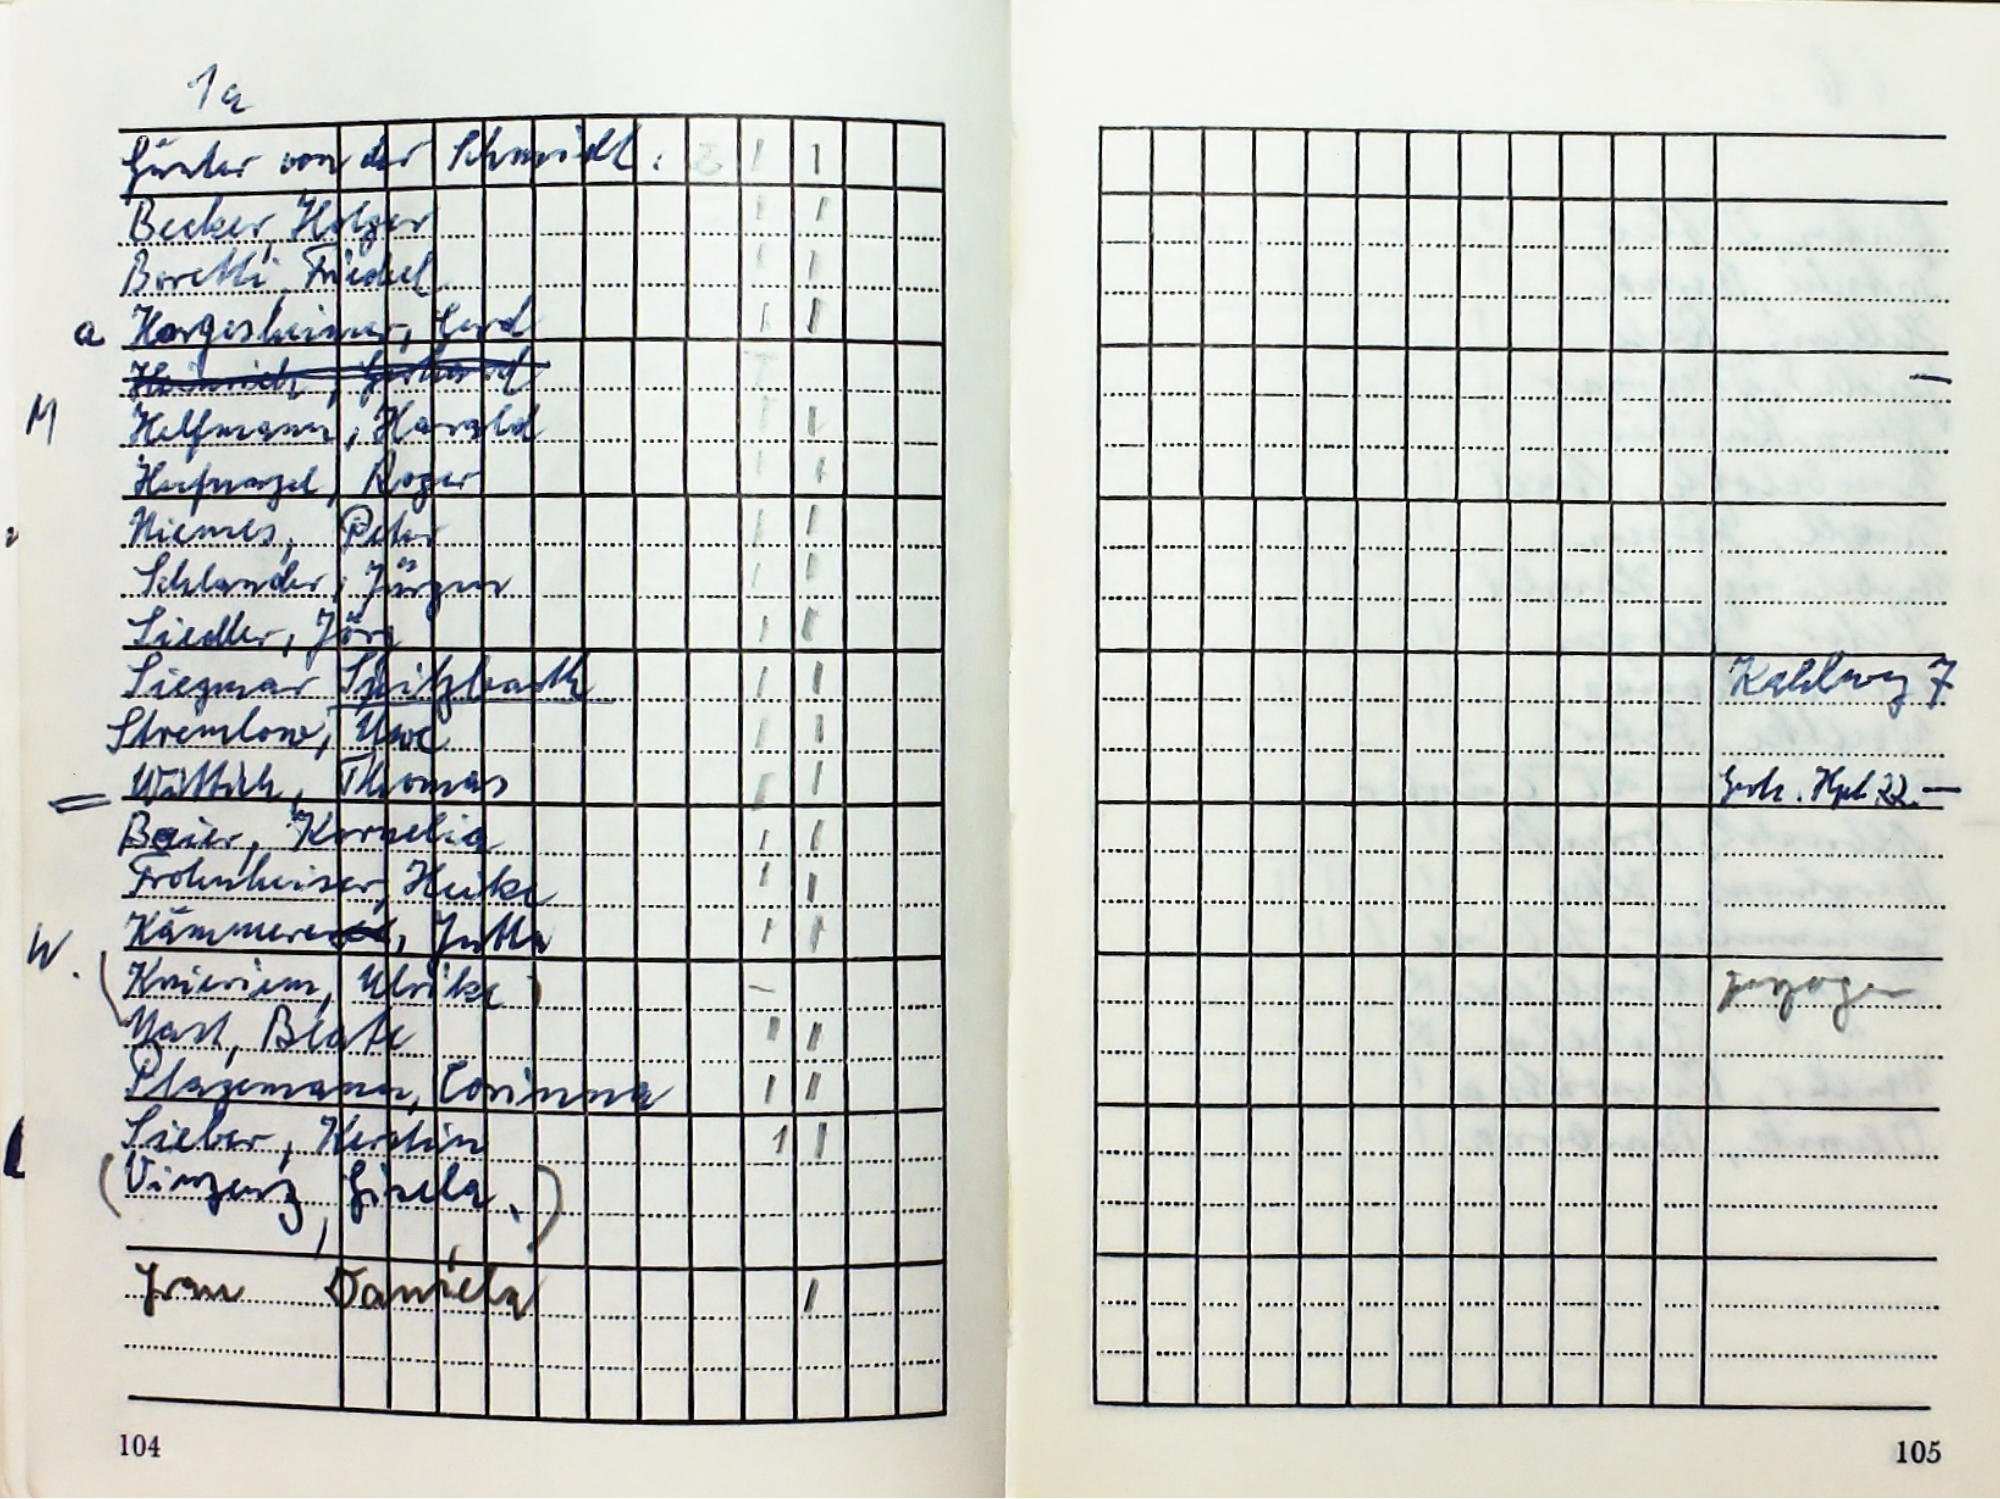 1a
Günter von der Schmidt.
Becker, Holger
Boretti, Friedel
a Hargesheimer, Gerd
Heinrich, Gerhard
M Helfmann, Harald
Hufnagel, Roger
Niemes, Peter
Schlander, Jürgen
Siedler, Jörg
Siegmar Spitzbarth Kahlweg 7
Stremlow, Uwe
Wittich, Thomas 22.—
Baier, Kornelia
Frohnheiser, Heike
Kämmerer, Jutta
W. (Knieriem, Ulrike)
Nast, Beate
Plagemann, Corinna
Sieber, Kerstin
(Vinzenz, Gisela.)
Daniela
104
105